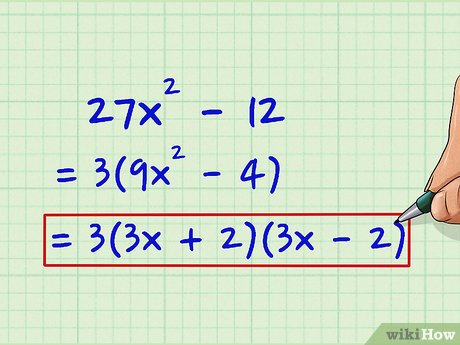 27x² - 12
= 3(9x² - 4)
= 3(3x + 2)(3x - 2)
wikiHow